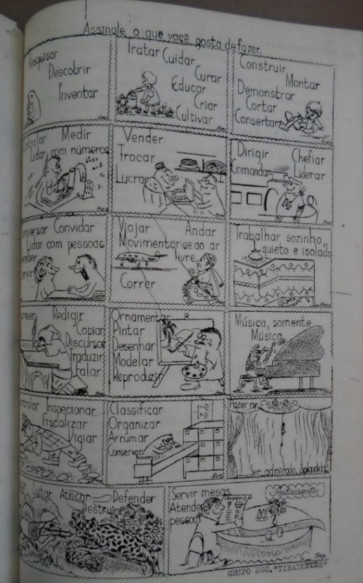 Assinale o que você gosta de fazer.
Pesquisar
Descobrir
Inventar
Tratar Cuidar
Curar
Educar
Criar
Cultivar
Construir
Montar
Demonstrar
Cortar
Consertar
Medir
Lidar com números
Vender
Trocar
Lucrar
Dirigir Chefiar
Comandar Liderar
Conversar Convidar
Lidar com pessoas
Viajar Andar
Movimentar-se ao ar
livre
Correr
Trabalhar sozinho,
quieto e isolado
Redigir
Copiar
Discursar
Traduzir
Falar
Ornamentar
Pintar
Desenhar
Modelar
Reproduzir
Música, somente
Música
Inspecionar
Fiscalizar
Vigiar
Classificar
Organizar
Arrumar
Conservar
Fazer rir
Ser admirado, aplaudido
Atacar Defender
Destruir
Servir mesas
Atender
pessoas